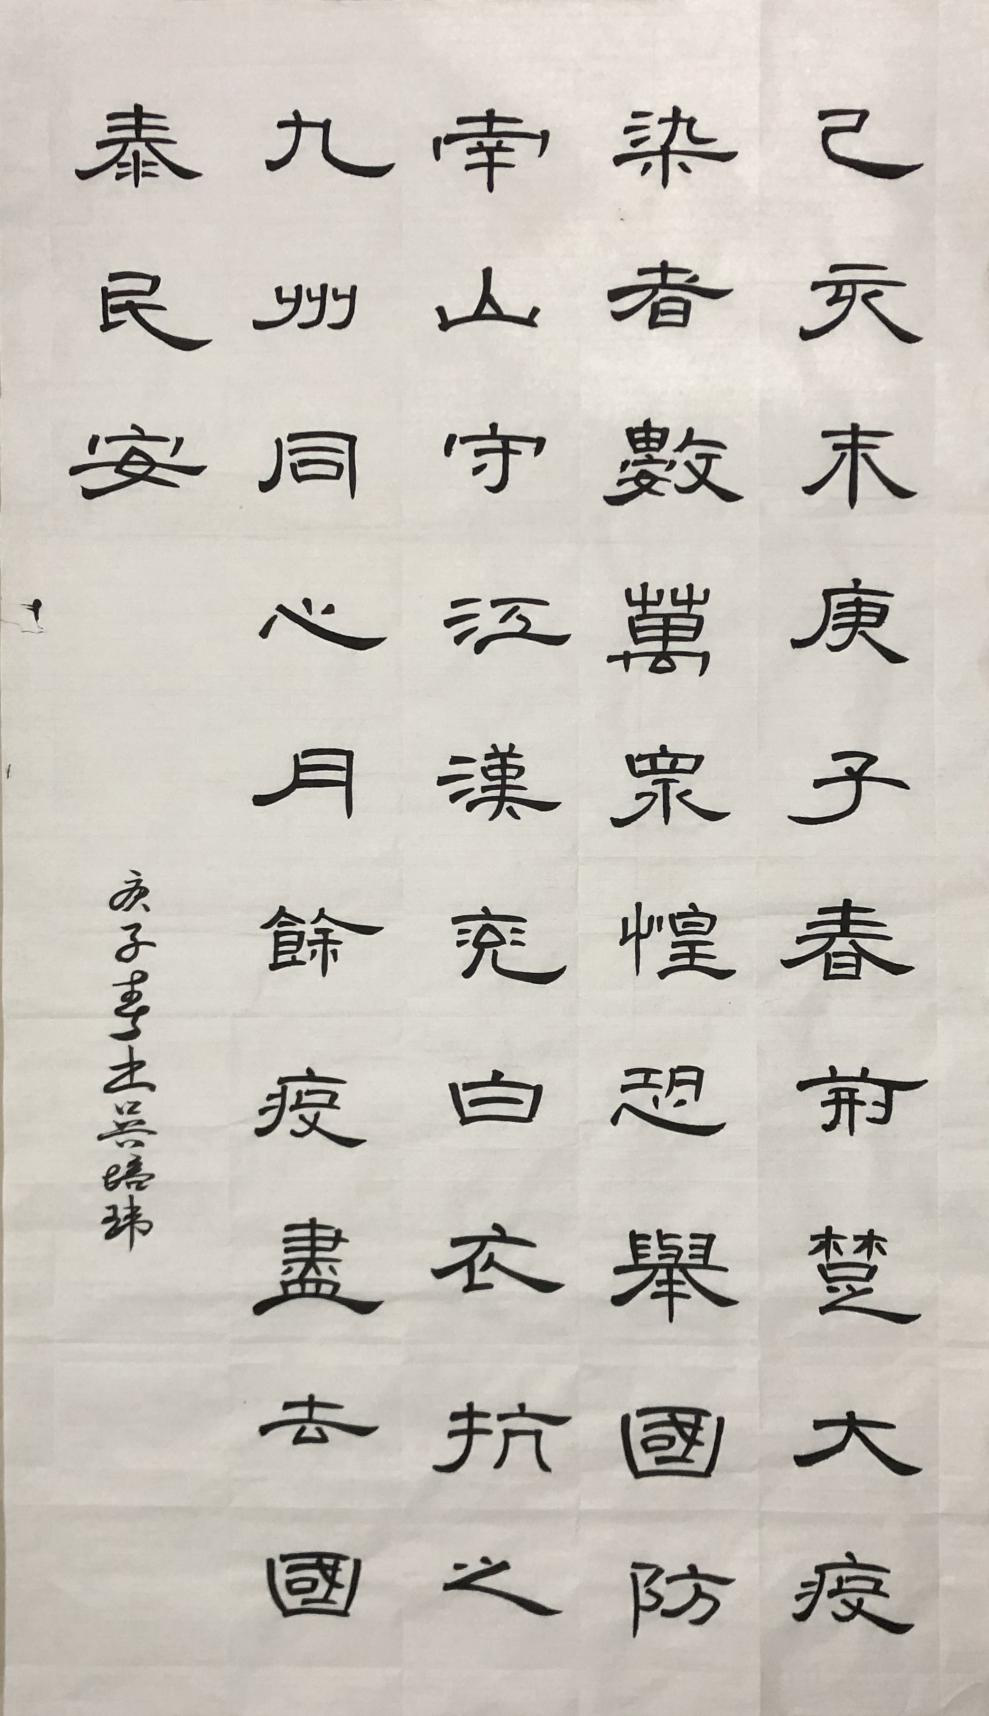 己亥末庚子春荊楚大疫
染者數萬眾惶恐舉國防
幸山守江漢兖白衣抗之
九州同心月餘疫盡去國
泰民安
庚子春 吳培瑋